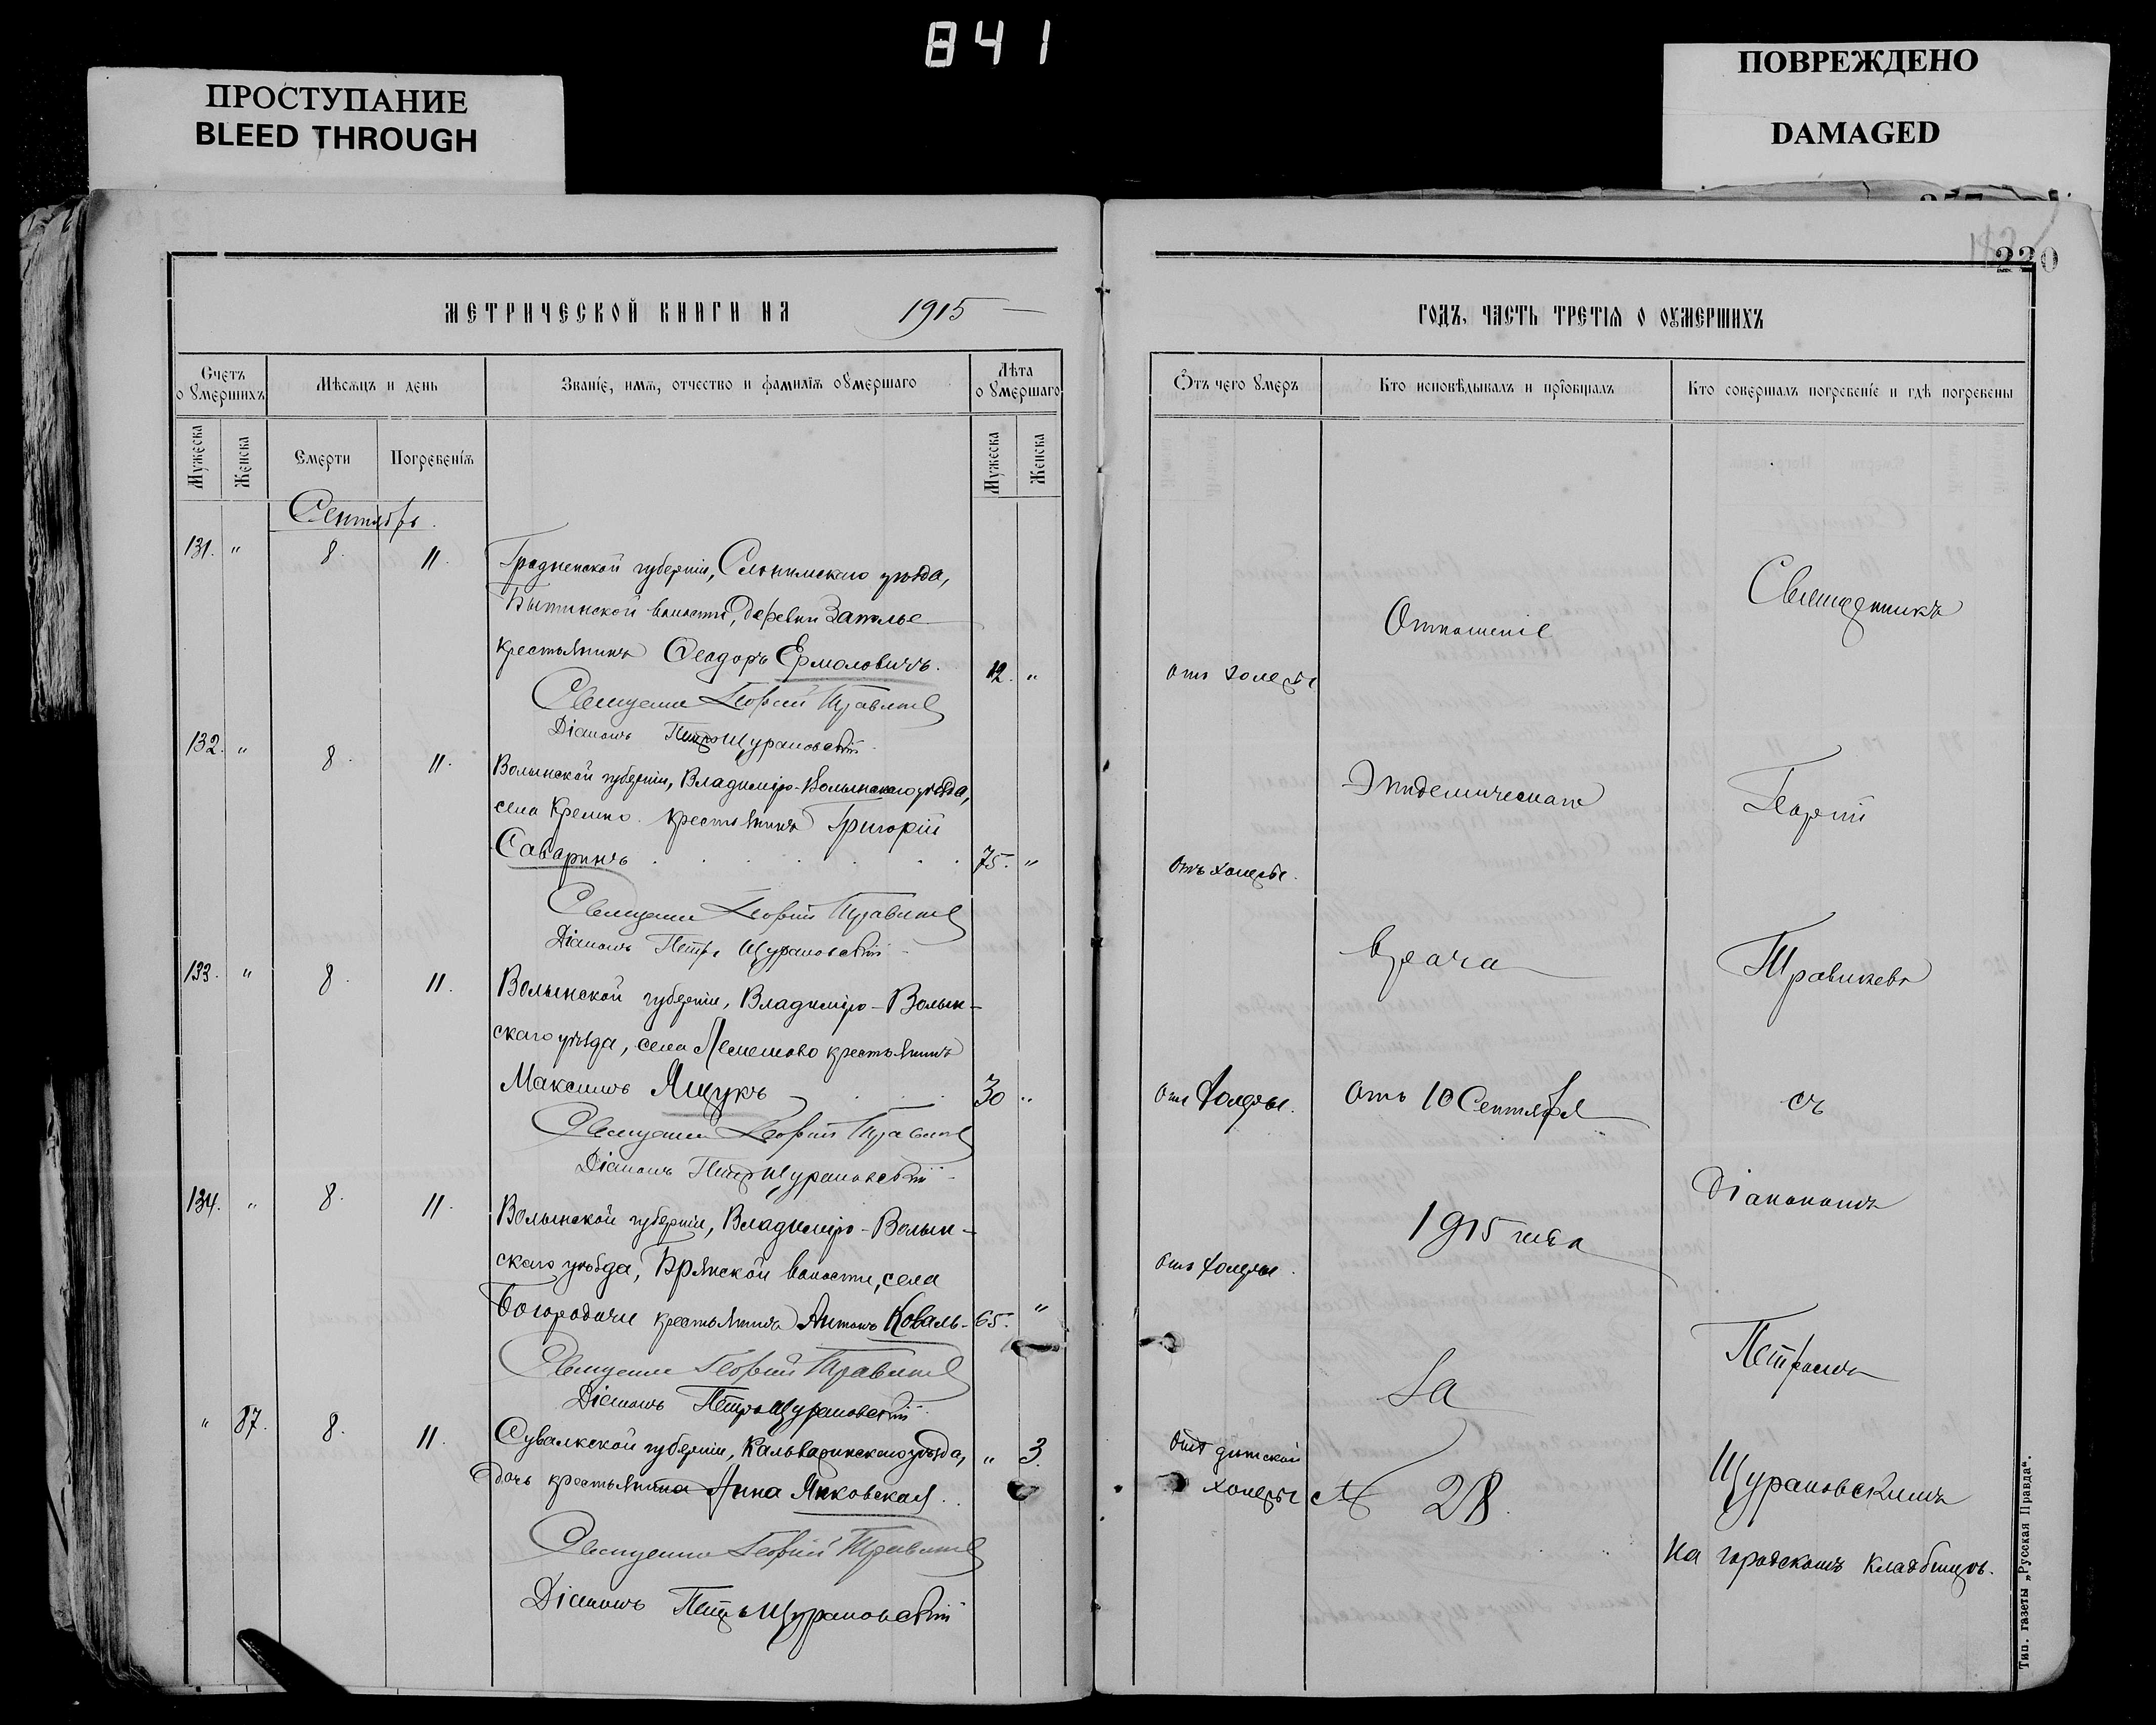 841
ПРОСТУПАНИЕ
BLEED THROUGH
ПОВРЕЖДЕНО
DAMAGED
220
МЕТРИЧЕСКОЙ КНИГИ НА 1915
Счетъ о умершихъ
Мѣсяцъ и день
Званіе, имя, отчество и фамилія умершаго
Лѣта о умершаго
Мужеска
Женска
Смерти
Погребенія
Мужеска
Женска
Сентябрь.
131. " 8. 11. Гродненской губерніи, Слонимскаго уѣзда,
Бытенской волости, деревни Заполье
крестьянинъ Ѳеодоръ Ермоловичъ. 12. "
Священникъ Георгій Травинъ
Діаконъ Петръ Щурановскій
132. " 8. 11. Волынской губерніи, Владиміро-Волынскаго уѣзда,
села Кремно. крестьянинъ Григорій
Саваринъ . . . . . . 75. "
Священникъ Георгій
Діаконъ Петръ Щурановскій
133. " 8. 11. Волынской губерніи, Владиміро-Волын-
скаго уѣзда, села Лемешово крестьянинъ
Максимъ Ящукъ . . . 30 "
Священникъ Георгій
Діаконъ Петръ Щурановскій
134. " 8. 11. Волынской губерніи, Владиміро-Волын-
скаго уѣзда, волости, села
Богородичи крестьянинъ Антонъ Коваль- 65. "
Священникъ Георгій
Діаконъ Петръ Щурановскій
" 87. 8. 11. Сувалкской губерніи, Кальваринскаго уѣзда, " 3.
дочь крестьянина Анна Янковская . .
Священникъ Георгій
Діаконъ Петръ Щурановскій
ГОДЪ, ЧАСТЬ ТРЕТІЯ О УМЕРШИХЪ
Отъ чего умеръ
Кто исповѣдывалъ и пріобщалъ
Кто совершалъ погребеніе и гдѣ погребены
отъ холеры
Отъ холеры.
Отъ холеры.
Отъ холеры.
Отъ дѣтской
холеры
Отношеніе
Эпидемическаго
Врача
отъ 10 Сентября
1915 года
За
№ 28.
Священникъ
Георгій
съ
Діакономъ
Петромъ
Щурановскимъ
на городскомъ кладбищѣ.
Тип. газеты „Русская Правда“.